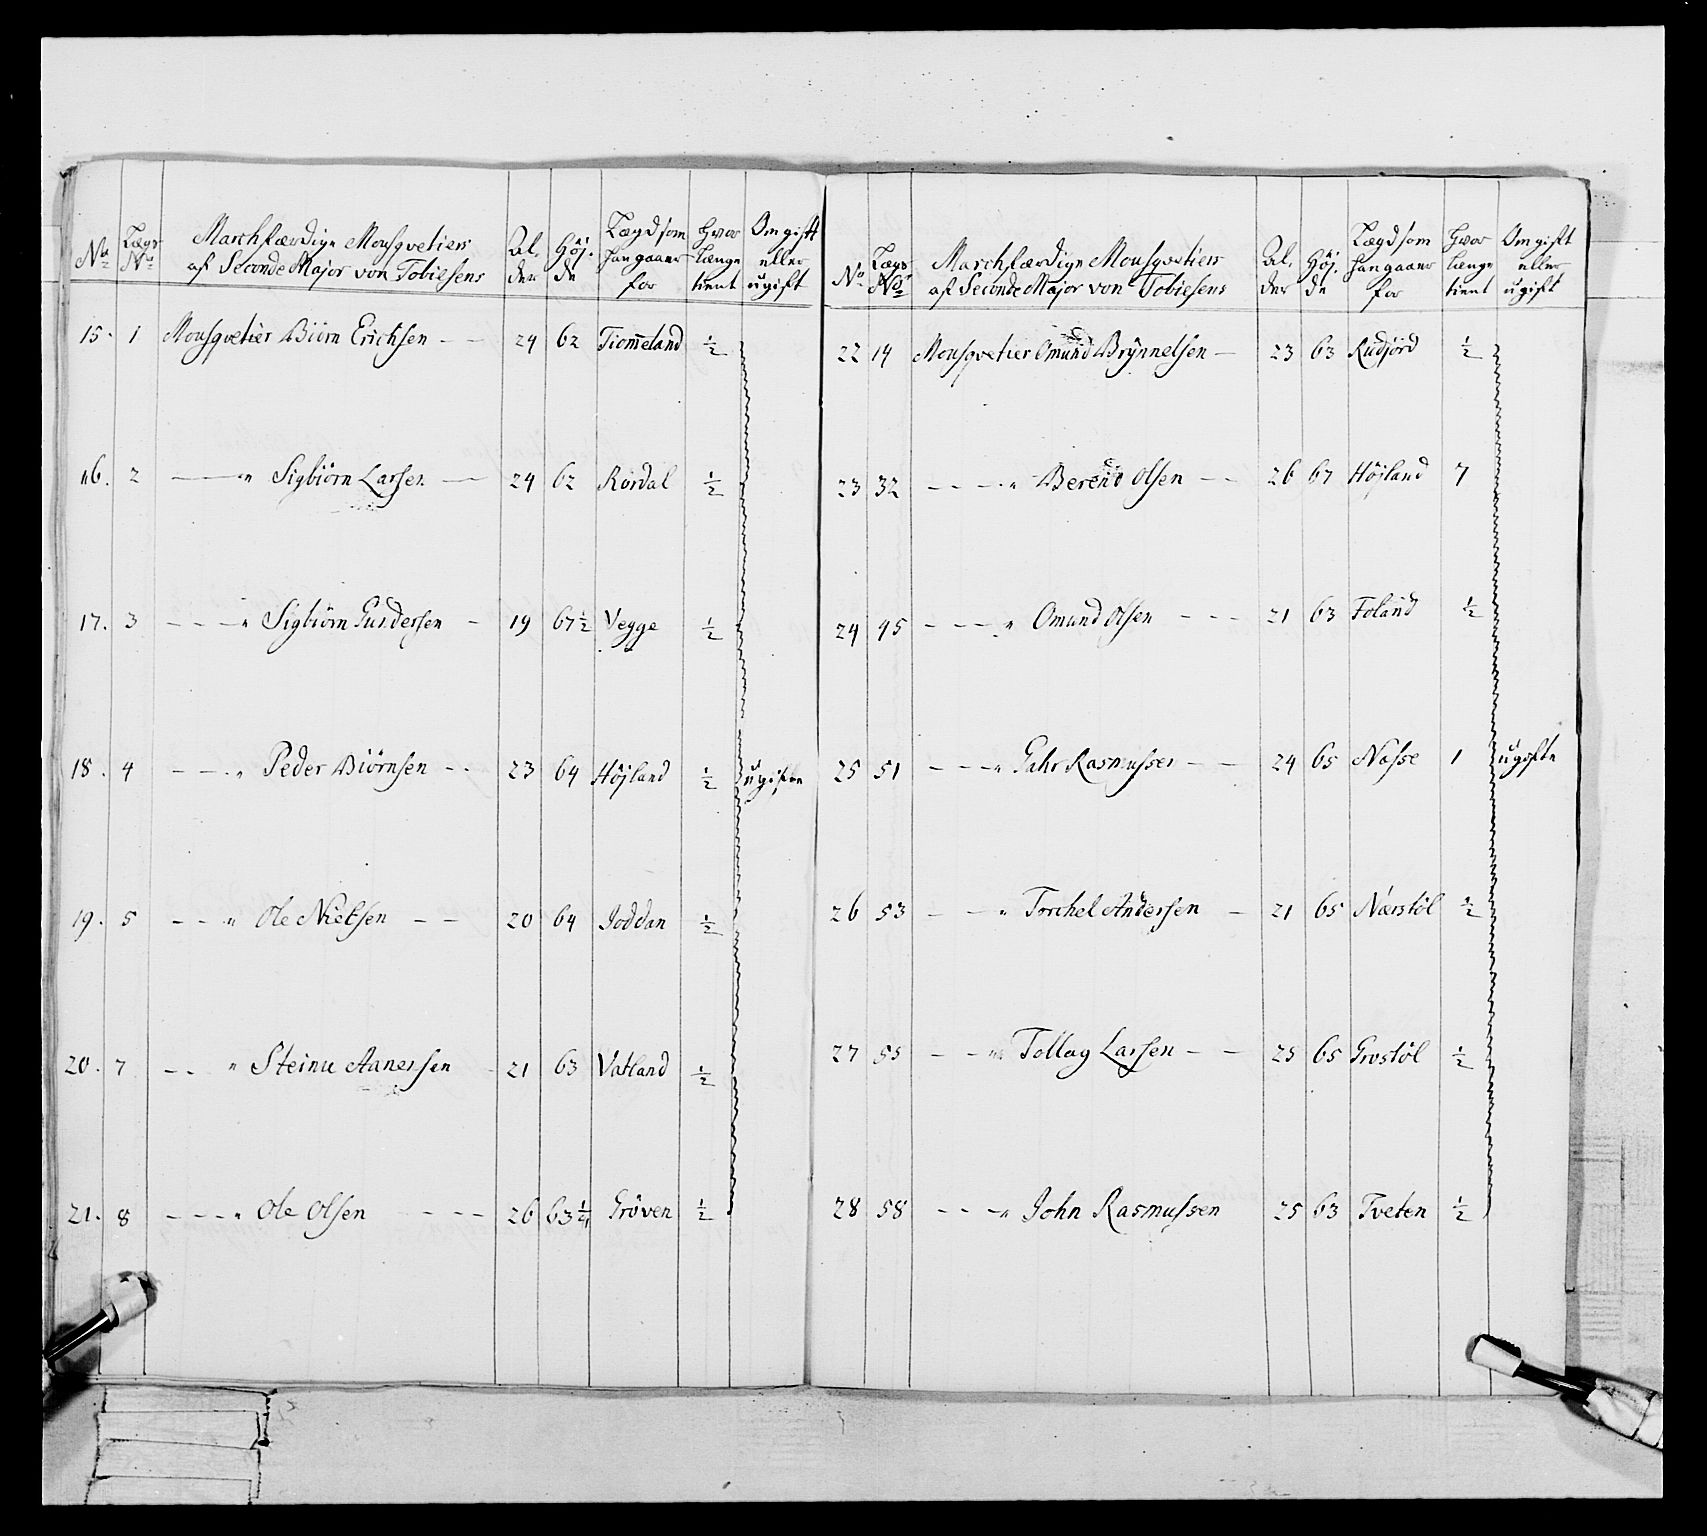 No Lægs No Marchfærdige Mousqvetiers af Seconde Major von Tobiesens Al. der Höj. de Lægd som han gaaer for Hvor længe tient Om gift eller ugift
15. 1 Mousqvetier Biörn Erichsen - - 24 62 Tiom̅eland ½
16. 2 — " Sigbiörn Larsen — 24 62 Rørdal ½
17. 3 - - - " Sigbiörn Gundersen - 19 67½ Vegge ½
18. 4 - - - " Peder Biörnsen - - 23 64 Höjland ½ ugifte
19. 5 - - " Ole Nielsen - - 20 64 Joddan ½
20. 7 - - " Steinu Aanersen 21 63 Vatland ½
21. 8 - - - " Ole Olsen - - - - 26 63¼ Gröven ½
No Lægs No Marchfærdige Mousqvetiers af Seconde Major von Tobiesens Al. der Höj. de Lægd som han gaaer for Hvor længe tient Om gift eller ugift
22 14 Mousqvetier Omund Brynnelsen - 23 63 Rudjord ½
23 32 - - - " Berend Olsen - - 26 67 Höjland 7
24 45 - - - " Omund Olsen - - - 21 63 Foland ½
25 51 - - - " Gahr Rasmussen - - 24 65 Næsse 1 ugifte
26 53 - - " Torchel Andersen - 21 65 Nærstöl ½
27 55 - - " Tollag Larsen - - 25 65 Grostöl ½
28 58 - - - " John Rasmussen 25 63 Tveten ½